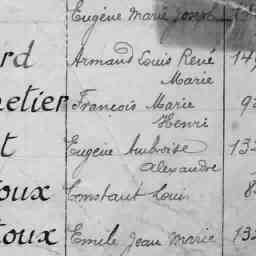 Eugène Marie Joseph
rd Armand Louis René 149
Marie
netier François Marie 92
Henri
t Eugène Ambroise 132
Alexandre
oux Constant Louis 8
toux Emile Jean Marie 132